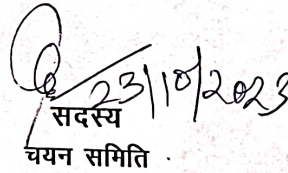 23/10/2023
सदस्य
चयन समिति .